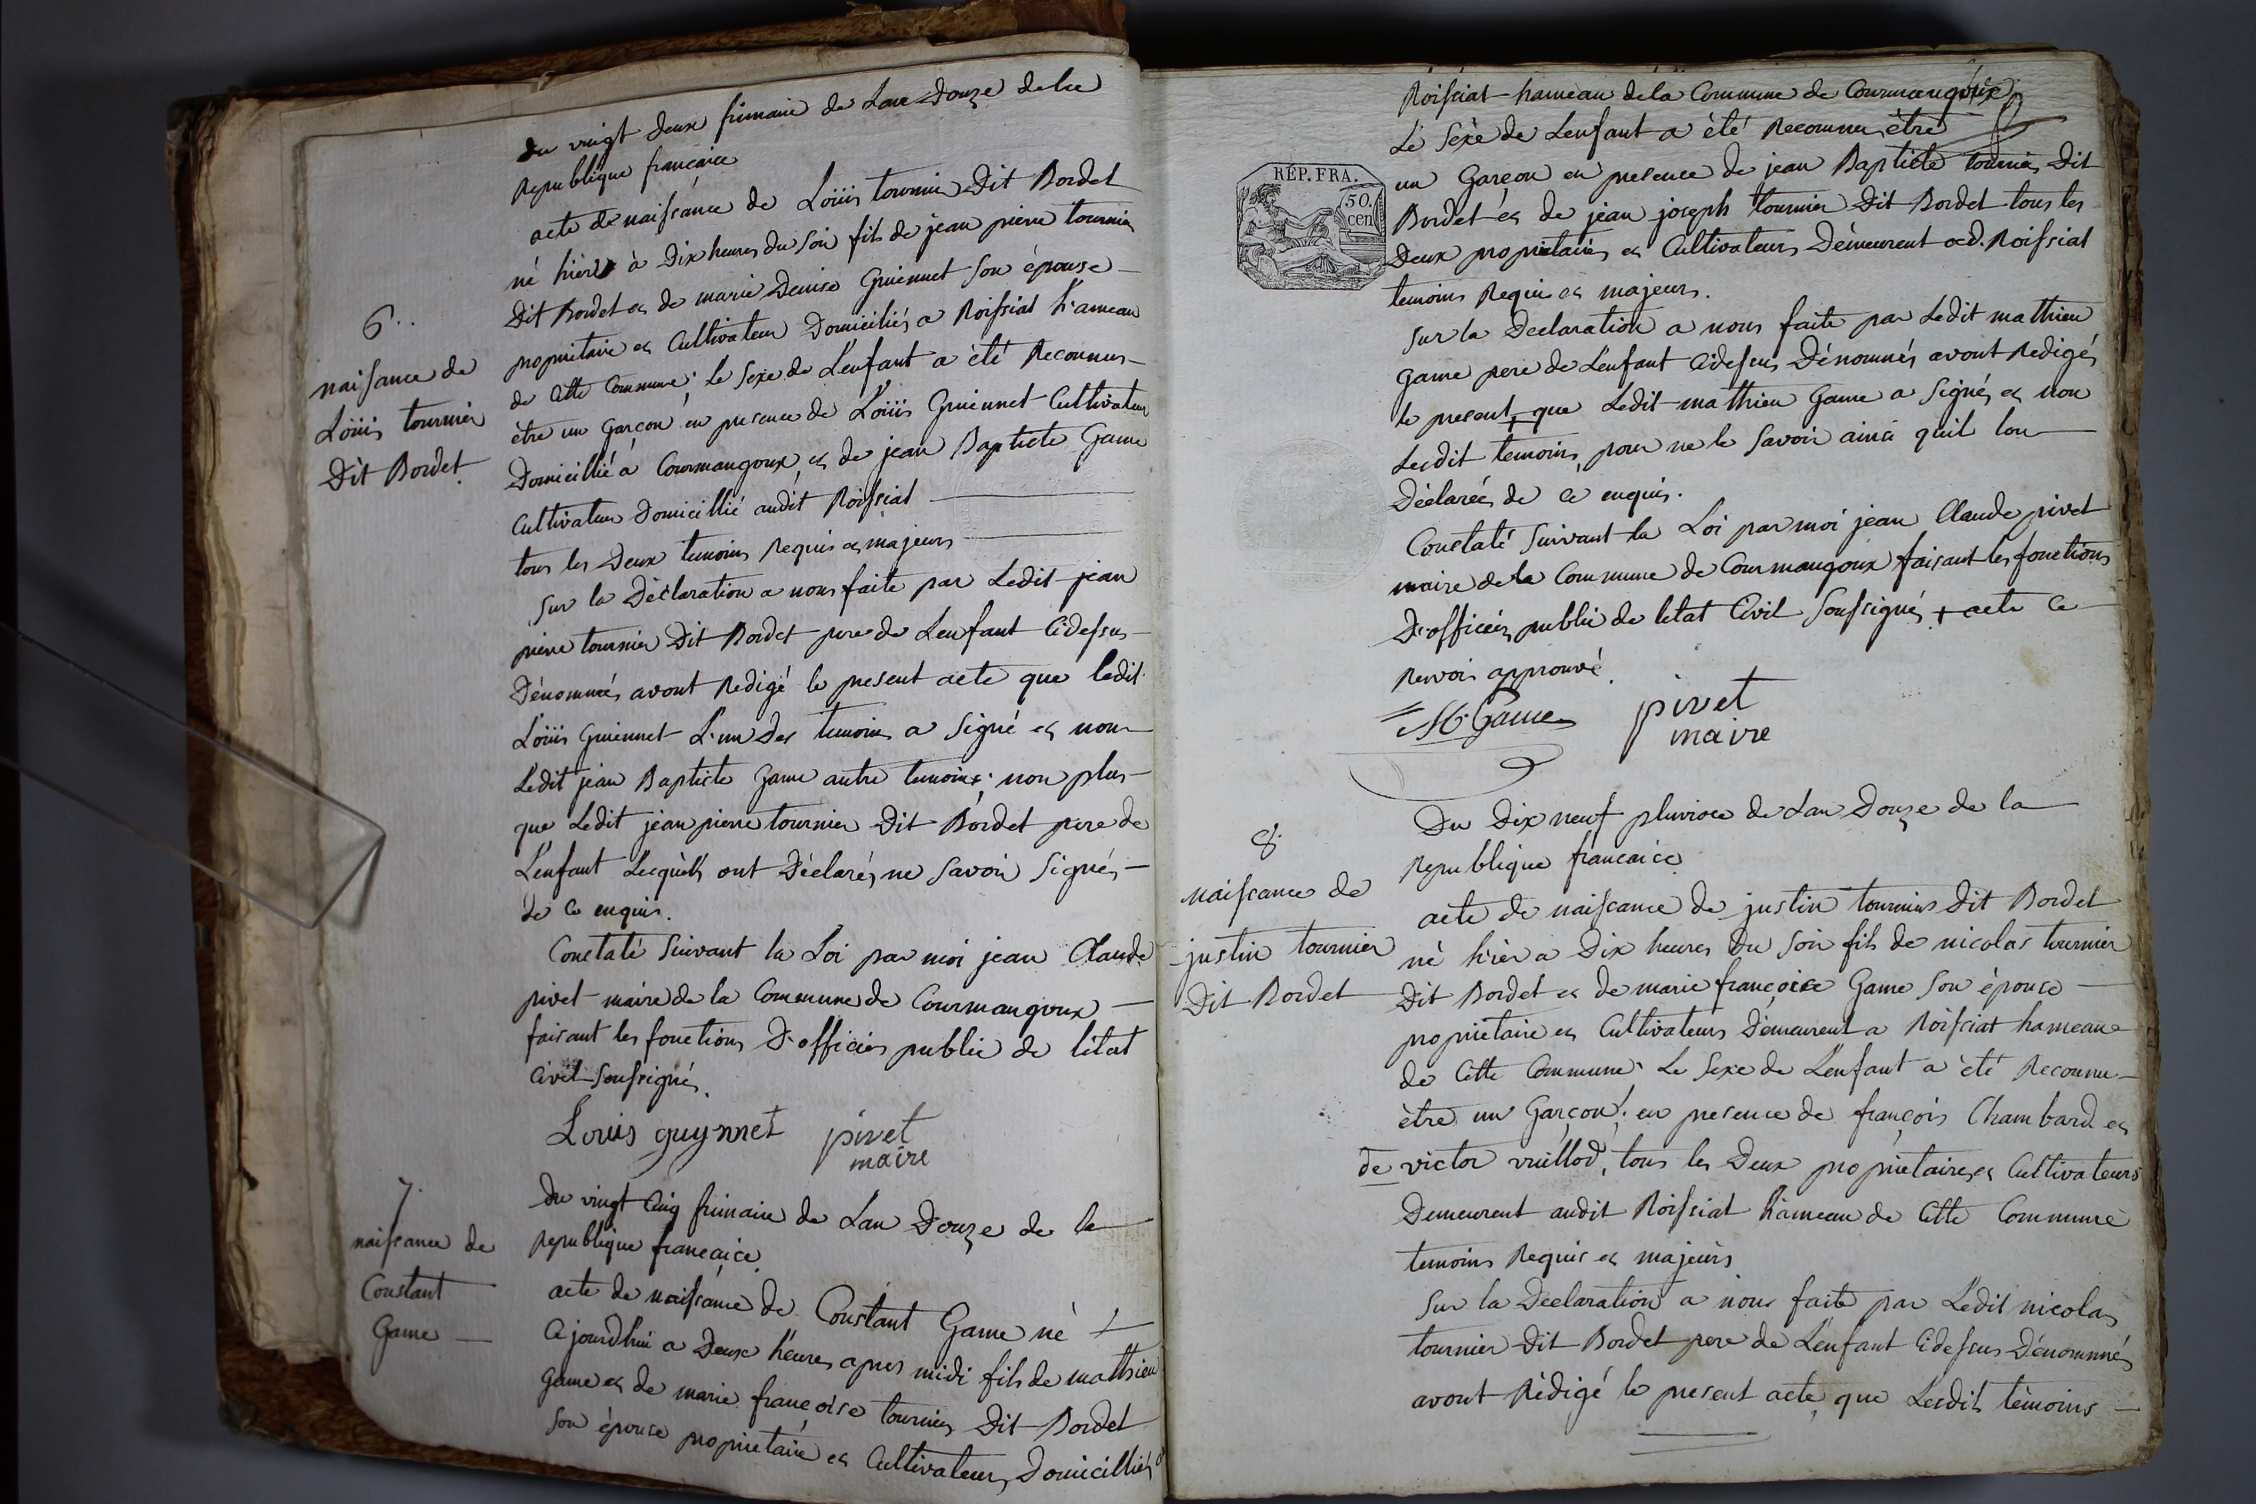 du vingt deux frimaire de Lan Douze de la
Republique francaice
acte de naissance de Loüis tournier Dit Bordet
né hièr à Dix heures du soir fils de jean pierre tournier
Dit Bordet et de marie Denise Guiennet son épouse
6.
propriètaire et Cultivateur Domiciliés a Roissiat h'ameau
naisance de
Loüis tournier
Dit Bordet.
de Cette Commune. Le sexe de L'enfant a èté Reconnus
ètre un Garçon en presence de L'oüis Guiennet Cultivateur
Domicillié à Courmangoux et de jean Baptiste Game
Cultivateur Domicillié audit Roissiat
tous les Deux temoins Requis et majeurs
sur la Dèclaration a nous faite par Ledit jean
pierre tournier Dit Bordet pere de Lenfant Cidessus
Dénommés avont Redigé le present acte que ledit
L'oüis Guiennet L'un Des temoins a signé et non
Ledit jean Baptiste Game autre temoins, non plus
que Ledit jean pierre tournier Dit Bordet pere de
L'enfant Lesquels ont Dèclarés ne savoir signés
de Ce enquis.
Constaté suivant la Loi par moi jean Claude
pivet maire de la Commune de Courmangoux
faisant les fonctions D'officiers public de létat
Civil soussignés.
Louis guynnet pivet
maire
7.
naissance de
Constant
Game
Du vingt Cinq frimaire de Lan Douze de la
Republique francaice.
acte de naissance de Constant Game nè +
Ajourdhui a Deux h'eures apres midi fils de mathieu
Game et de marie françoise tournier Dit Bordet
son épouse propriètaire et Cultivateurs Domicilliés a
Roissiat hameau de la Commune de Courmangoux
Le sexe de Lenfant a èté Reconnu ètre
un Garçon en presence de jean Baptiste tournier Dit
RÉP. FRA.
50.
cen
Bordet et de jean joseph tournier Dit Bordet tous les
Deux propriètaires et Cultivateurs Dèmeurent aud. Roissiat
temoins Requis et majeurs.
sur la Declaration a nous faite par Ledit mathieu
Game pere de Lenfant Cidessus Dénommés avont Redigés
le present + que Ledit mathieu Game a signés et non
Lesdit temoins, pour ne le savoir ainsi quil lon
Dèclarés de Ce enquis.
Constaté suivant la Loi par moi jean Claude pivet
maire de la Commune de Courmangoux faisant les fonctions
D'officiers public de létat Civil soussignés + acte Ce
Renvoi approuvé.
M. Game pivet
maire
8.
naissance de
justin tournier
Dit Bordet
Du Dix neuf pluviose de Lan Douze de la
Republique francaice
acte de naissance de justin tournier Dit Bordet
nè h'ièr a Dix heures Du soir fils de nicolas tournier
Dit Bordet et de marie françoise Game son èpouse
propriètaire et Cultivateurs Dèmeurent a Roissiat hameau
de Cette Commune. Le sexe de L'enfant a èté Reconnu
ètre un Garçon. en presence de françois Chambard et
de victor vuillod, tous les Deux propriètaires et Cultivateurs
Demeurent audit Roissiat hameau de Cette Commune
temoins Requis et majeurs
sur la Declaration a nous faite par Ledit nicolas
tournier Dit Bordet pere de L'enfant Cidessus Dénommés
avont Rèdigé le present acte, que Lesdits temoins